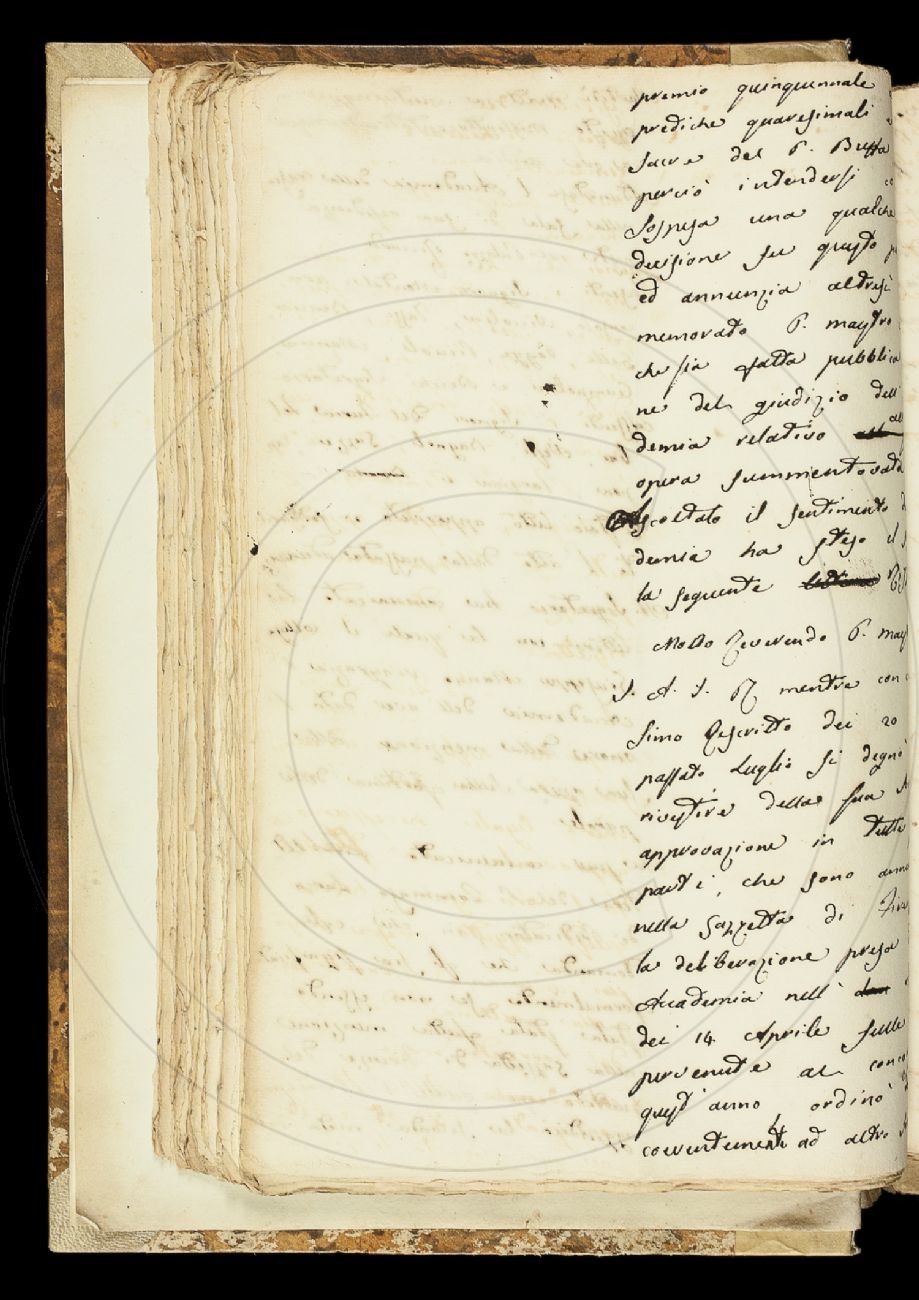 premio quinquennale
prediche quaresimali
sacre del P. Buffa
perciò intendersi
sospesa una qualche
decisione su questo
ed annunzia altresì
memorato P. maestro
che sia fatta pubblica
ne del giudizio dell
demia relativo all
opera summentovata
Ascoltato il sentimento
demia ha steso il
la seguente
Molto Reverendo P. maes
S. A. I. R mentre con
simo Rescritto dei 20
passato Luglio si degnò
rivestire della sua
approvazione in tutte
parti, che sono
nella Gazzetta di Fire
la deliberazione presa
Accademia nell'
dei 14 Aprile sulle
pervenute al conco
quest'anno, ordinò
coerentemente ad altro